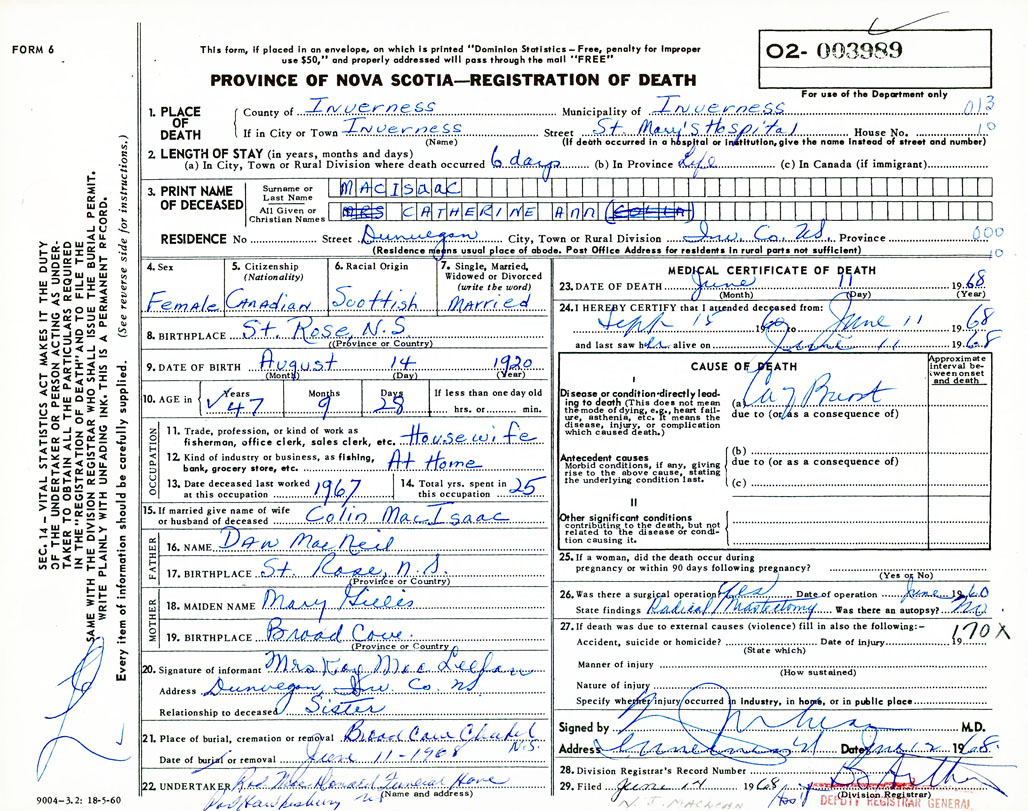 FORM 6
This form, if placed in an envelope, on which is printed "Dominion Statistics – Free, penalty for improper
use $50," and properly addressed will pass through the mail "FREE"
PROVINCE OF NOVA SCOTIA—REGISTRATION OF DEATH
O2- 003989
For use of the Department only
1. PLACE OF DEATH
County of Inverness Municipality of Inverness 013
If in City or Town Inverness Street St Mary's Hospital House No. 10
(Name) (If death occurred in a hospital or institution, give the name instead of street and number)
2. LENGTH OF STAY (in years, months and days)
(a) In City, Town or Rural Division where death occurred 6 days (b) In Province Life (c) In Canada (if immigrant)
3. PRINT NAME OF DECEASED
Surname or Last Name MACISAAC
All Given or Christian Names MRS CATHERINE ANN
RESIDENCE No Street Dunvegan City, Town or Rural Division Inv. Co. NS. Province 000
(Residence means usual place of abode. Post Office Address for residents in rural parts not sufficient) 10
4. Sex Female
5. Citizenship (Nationality) Canadian
6. Racial Origin Scottish
7. Single, Married, Widowed or Divorced (write the word) Married
8. BIRTHPLACE St. Rose, N.S.
(Province or Country)
9. DATE OF BIRTH August 14 1920
(Month) (Day) (Year)
10. AGE in Years 47 Months 9 Days 28 If less than one day old hrs. or min.
OCCUPATION
11. Trade, profession, or kind of work as fisherman, office clerk, sales clerk, etc. Housewife
12. Kind of industry or business, as fishing, bank, grocery store, etc. At Home
13. Date deceased last worked at this occupation 1967
14. Total yrs. spent in this occupation 25
15. If married give name of wife or husband of deceased Colin MacIsaac
FATHER
16. NAME Dan MacNeil
17. BIRTHPLACE St Rose, N.S.
(Province or Country)
MOTHER
18. MAIDEN NAME Mary Gillis
19. BIRTHPLACE Broad Cove.
(Province or Country)
20. Signature of informant Mrs Kay Mac Lellan
Address Dunvegan Inv. Co. NS
Relationship to deceased Sister
21. Place of burial, cremation or removal Broad Cove Chapel N.S.
Date of burial or removal June 11-1968
22. UNDERTAKER Funeral Home
(Name and address) Port Hawkesbury NS
MEDICAL CERTIFICATE OF DEATH
23. DATE OF DEATH June 11 1968
(Month) (Day) (Year)
24. I HEREBY CERTIFY that I attended deceased from:
Sept 15 1960 to June 11 1968
and last saw her alive on June 11 1968
CAUSE OF DEATH
Approximate interval between onset and death
I
Disease or condition directly leading to death (This does not mean the mode of dying, e.g., heart failure, asthenia, etc. It means the disease, injury, or complication which caused death.)
(a) Ca, Breast
due to (or as a consequence of)
Antecedent causes
Morbid conditions, if any, giving rise to the above cause, stating the underlying condition last.
(b)
due to (or as a consequence of)
(c)
II
Other significant conditions contributing to the death, but not related to the disease or condition causing it.
25. If a woman, did the death occur during pregnancy or within 90 days following pregnancy?
(Yes or No)
26. Was there a surgical operation? Yes Date of operation June 1960
State findings Radical Mastectomy Was there an autopsy? No.
27. If death was due to external causes (violence) fill in also the following:– 170X
Accident, suicide or homicide? Date of injury 19
(State which)
Manner of injury
(How sustained)
Nature of injury
Specify whether injury occurred in industry, in home, or in public place
Signed by M.D.
Address Inverness NS Date June 12 1968.
28. Division Registrar's Record Number
29. Filed June 14 1968
(Division Registrar)
N. J. MACLEAN
DEPUTY REGISTRAR GENERAL
SEC. 14 – VITAL STATISTICS ACT MAKES IT THE DUTY
OF THE UNDERTAKER OR PERSON ACTING AS UNDER-
TAKER TO OBTAIN ALL THE PARTICULARS REQUIRED
IN THE "REGISTRATION OF DEATH" AND TO FILE THE
SAME WITH THE DIVISION REGISTRAR WHO SHALL ISSUE THE BURIAL PERMIT.
WRITE PLAINLY WITH UNFADING INK. THIS IS A PERMANENT RECORD.
Every item of information should be carefully supplied. (See reverse side for instructions.)
9004–3.2: 18-5-60